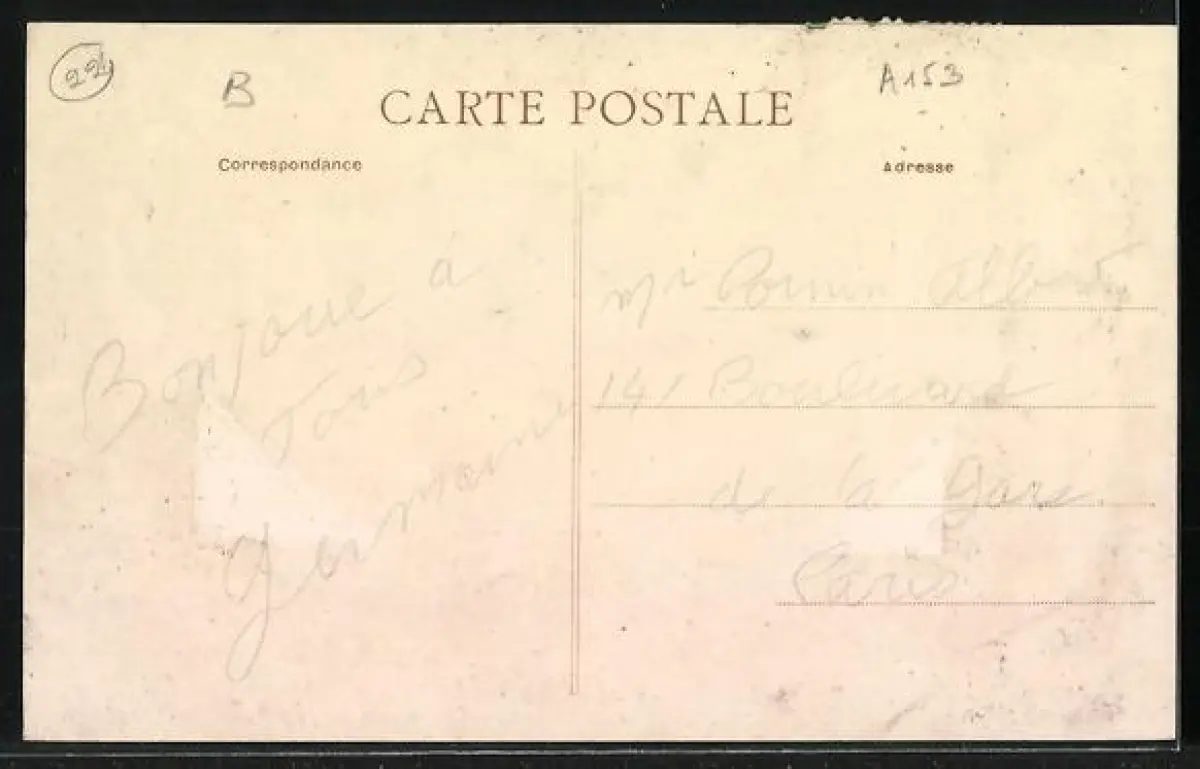 224
B
A153
CARTE POSTALE
Correspondance
Adresse
Bonjour à
Tous
Germaine
Mr Albert
141 Boulevard
de la Gare
Paris